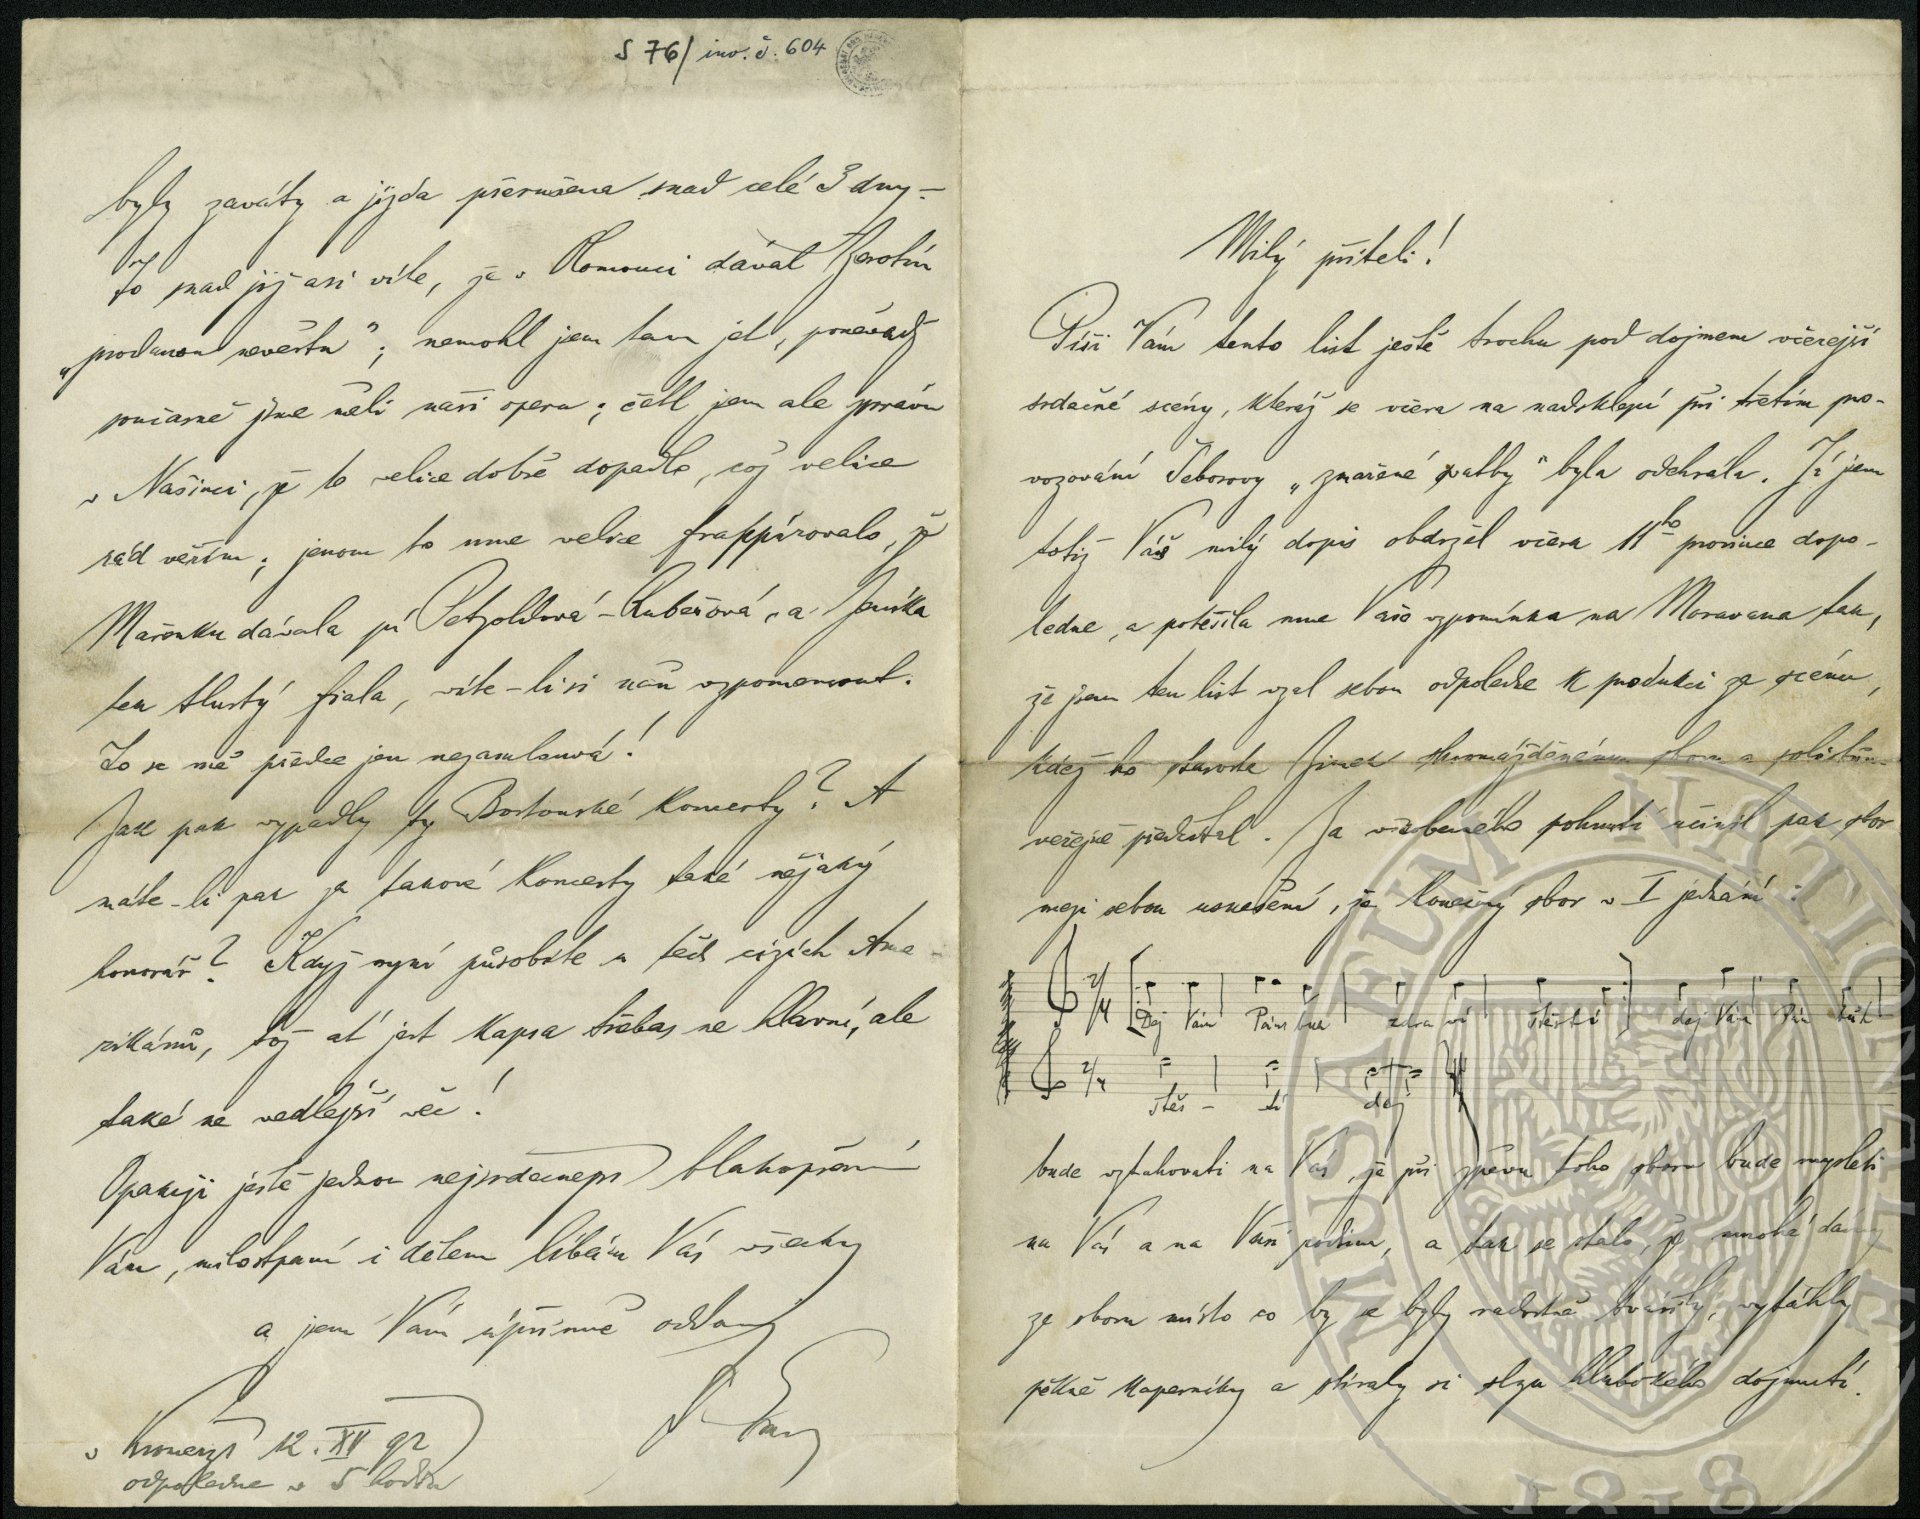 S 76/ inv. č. 604
byly zaváty a jízda přerušena snad celé 3 dny –
To snad již asi víte, že v Olomouci dával Žerotín
„prodanou nevěstu"; nemohl jsem tam jet, poněvadž
současně jsme měli naši operu; četl jsem ale zprávu
v Našinci, že to velice dobře dopadlo, což velice
rád věřím; jenom to mne velice frappírovalo, že
Mařenku dávala pí Petzoldová-Lubešová, a Jeníka
ten tlustý fiala, víte-li si naň vzpomenout.
To se mě předce jen nezamlouvá!
Jak pak vypadly ty Bostonské koncerty? A
máte-li pak za takové koncerty také nějaký
honorář? Když nyní působíte u těch cizích Ame-
rikánů, tož ať jest kapsa třebas ne hlavní, ale
také ne vedlejší věc!
Opakuji ještě jednou nejsrdečnější blahopřání
Vám, milostpaní i dětem líbám Vás všecky
a jsem Vám upřímně oddaný
v Kroměříži 12. XII 92
odpoledne v 5 hodin
Milý příteli!
Píši Vám tento list ještě trochu pod dojmem včerejší
srdečné scény, kteráž se včera na nadsklepí při třetím pro-
vozování Šeborovy „zmařené svatby" byla odehrála. Já jsem
totiž Váš milý dopis obdržel včera 11ho prosince dopo-
ledne, a potěšila mne Vaše vzpomínka na Moravana tak,
že jsem ten list vzal sebou odpoledne k produkci za scénu,
kdež ho starosta shromážděnému sboru a solistům
veřejně předčetl. Za všeobecného pohnutí učinil pak sbor
mezi sebou usnešení, že konečný sbor v I jednání:
2/4 Dej Vám Pán Bůh zdraví štěstí dej Vám Pán Bůh
2/4 štěs – tí dej
bude vztahovati na Vás, že při zpěvu toho sboru bude mysleti
na Vás a na Vaši rodinu, a tak se stalo, že mnohé dámy
ze sboru místo co by se byly radostně tvářily, vytáhly
pěkně kapesníky a stíraly si slzu hlubokého dojmutí.
MUSAEUM NATIONALE
1818